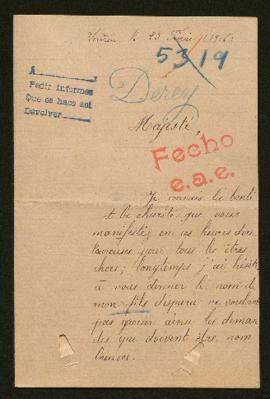 le 23 Février 1916.
5319
A
Pedir informes
Que se hace así
Devolver
Derey
Majesté,
Fecho
e.a.e.
Je connais la bonté
et la charité que vous
manifestez en ces heures dou-
loureuses pour tous les êtres
chers; longtemps j'ai hésité
à vous donner le nom de
mon fils disparu ne voulant
pas grossir ainsi les deman-
des qui doivent être nom
breuses.